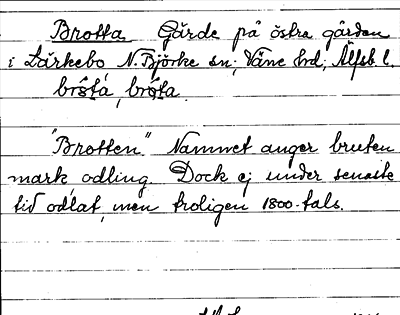 Brotta Gärde på östra gården
i Lärkebo N. Björke sn; Väne hd, Älfsb l.
"Brotten" Namnet anger bruten
mark odling. Dock ej under senaste
tid odlat, men troligen 1800-tals.